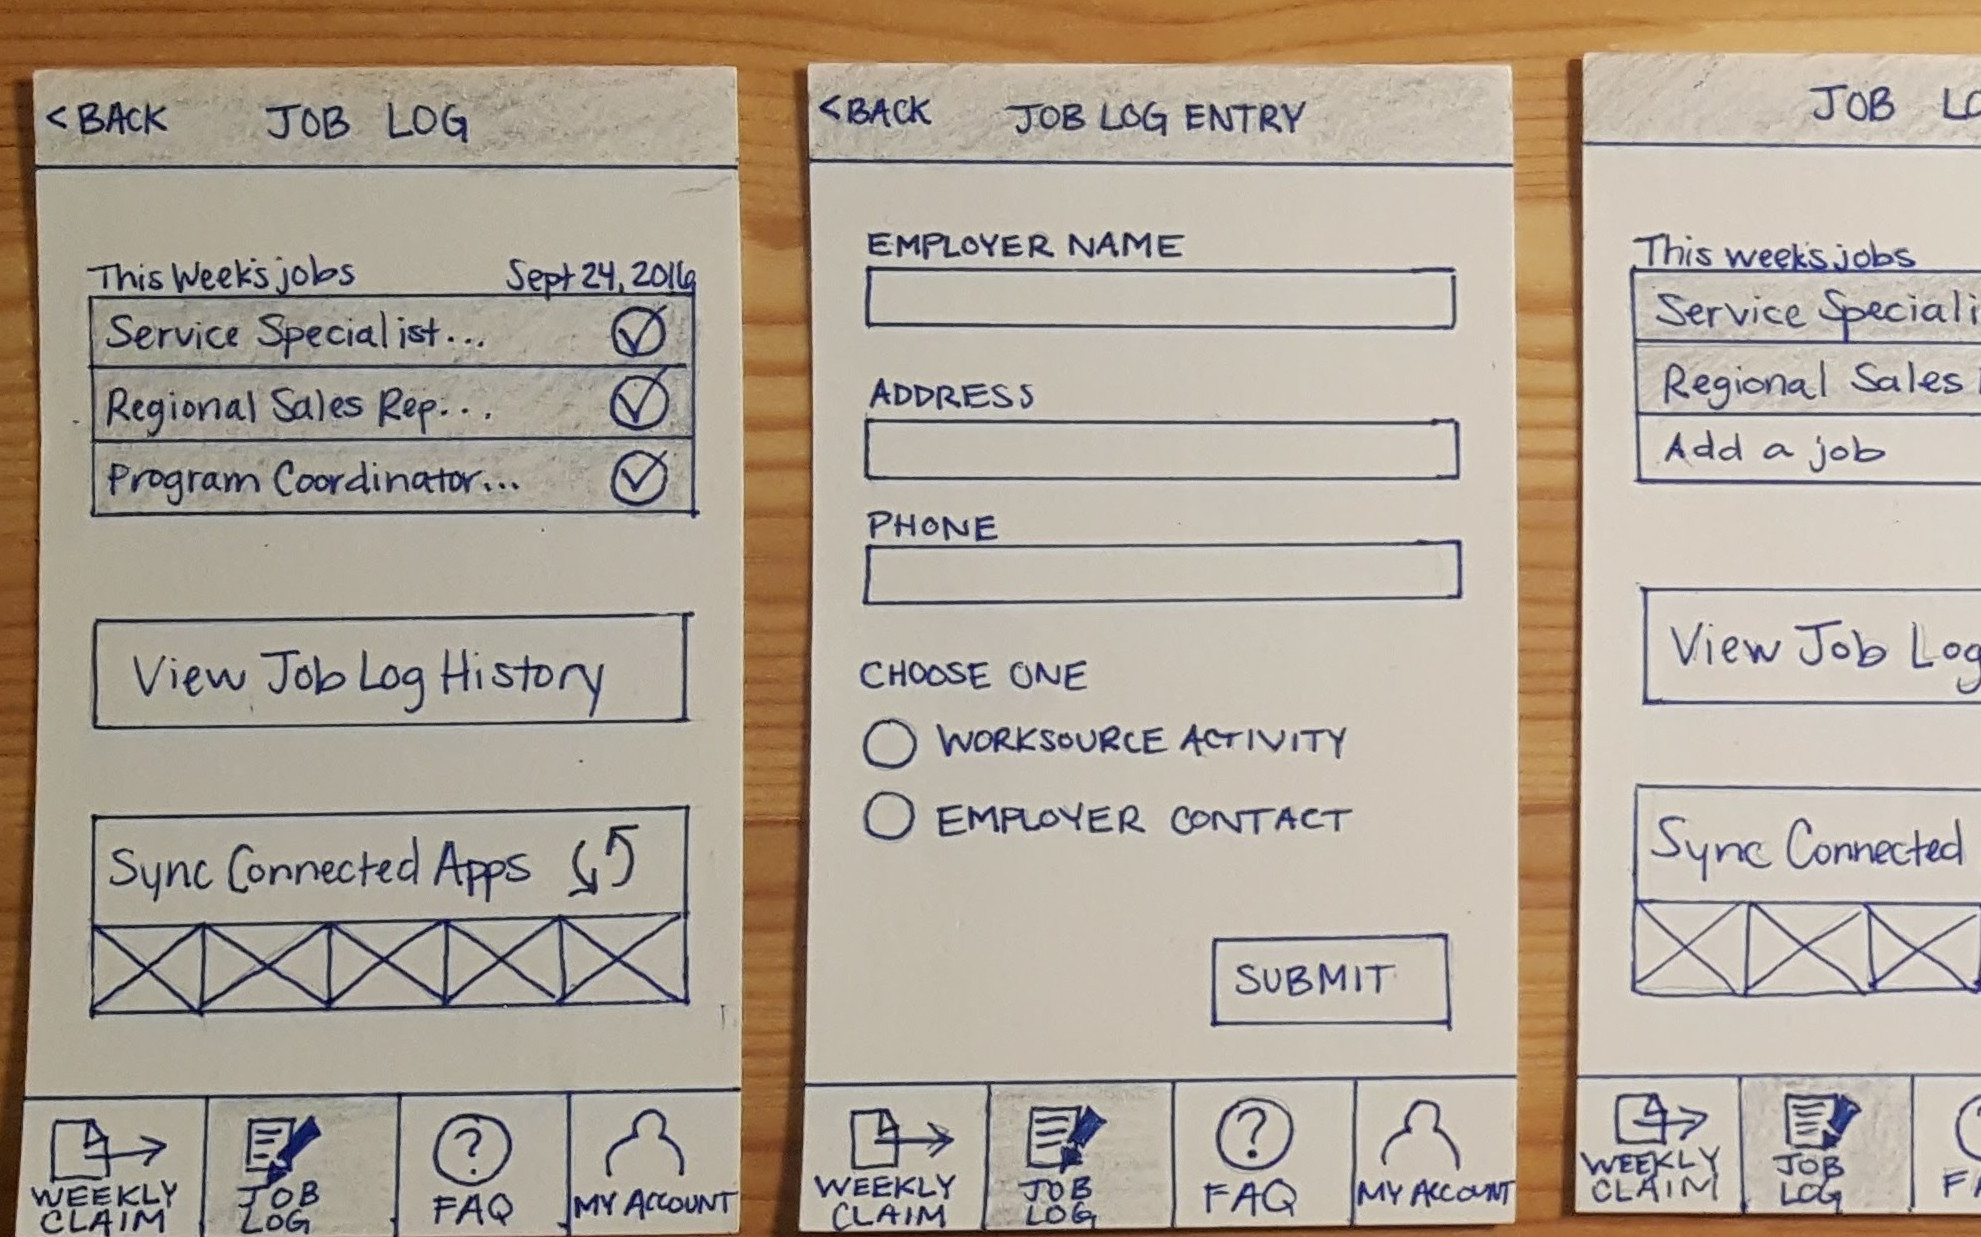 < BACK JOB LOG
This Week's jobs Sept 24, 2016
Service Specialist...
Regional Sales Rep...
Program Coordinator...
View Job Log History
Sync Connected Apps
WEEKLY CLAIM
JOB LOG
FAQ
MY ACCOUNT
< BACK JOB LOG ENTRY
EMPLOYER NAME
ADDRESS
PHONE
CHOOSE ONE
WORKSOURCE ACTIVITY
EMPLOYER CONTACT
SUBMIT
WEEKLY CLAIM
JOB LOG
FAQ
MY ACCOUNT
JOB
This week's jobs
Service
Regional Sales
Add a job
View Job Log
Sync Connected
WEEKLY CLAIM
JOB LOG